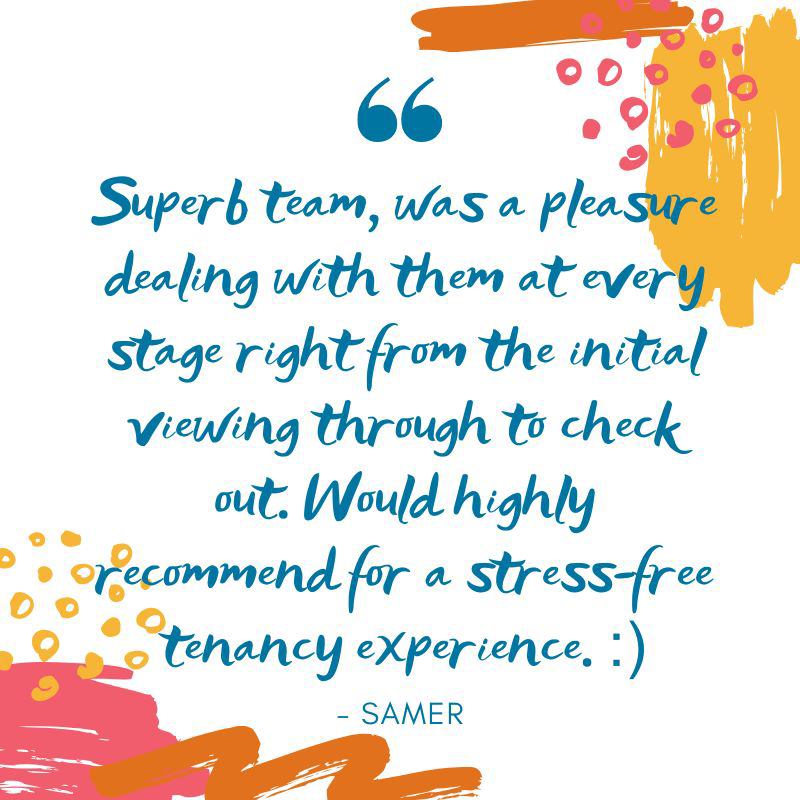 “
Superb team, was a pleasure
dealing with them at every
stage right from the initial
viewing through to check
out. Would highly
recommend for a stress-free
tenancy experience. :)
- SAMER